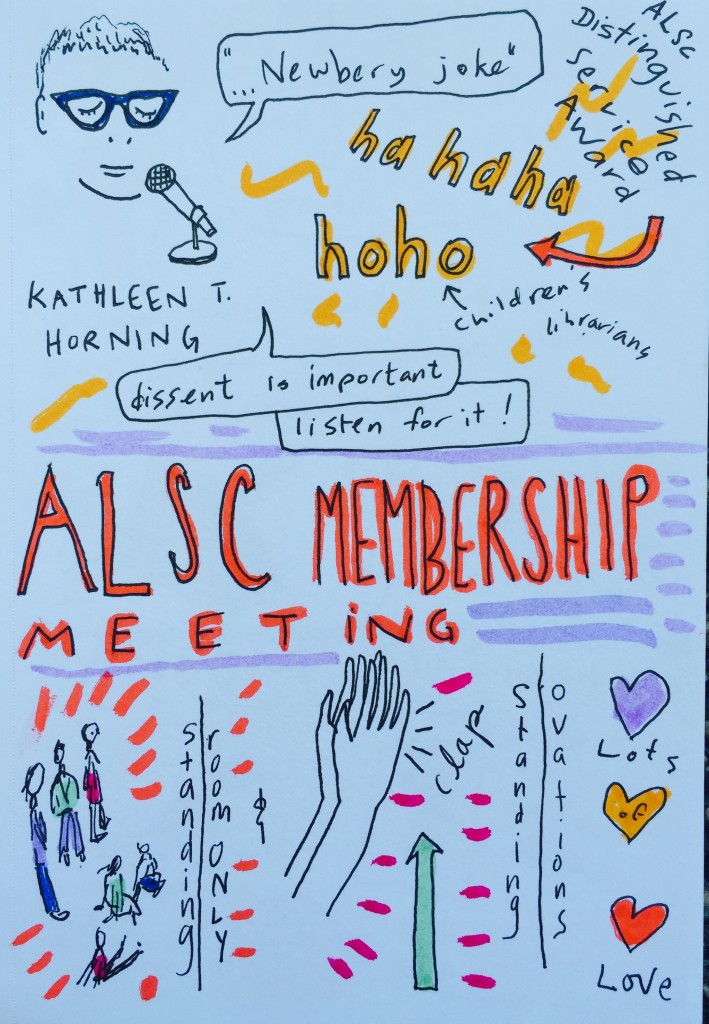 "...Newbery joke"
ALSC
Distinguished
Service
Award
ha ha ha
hoho
children's
librarians
KATHLEEN T.
HORNING
dissent is important
listen for it!
ALSC MEMBERSHIP
MEETING
standing
room ONLY
&
clap
standing
ovations
Lots
of
Love